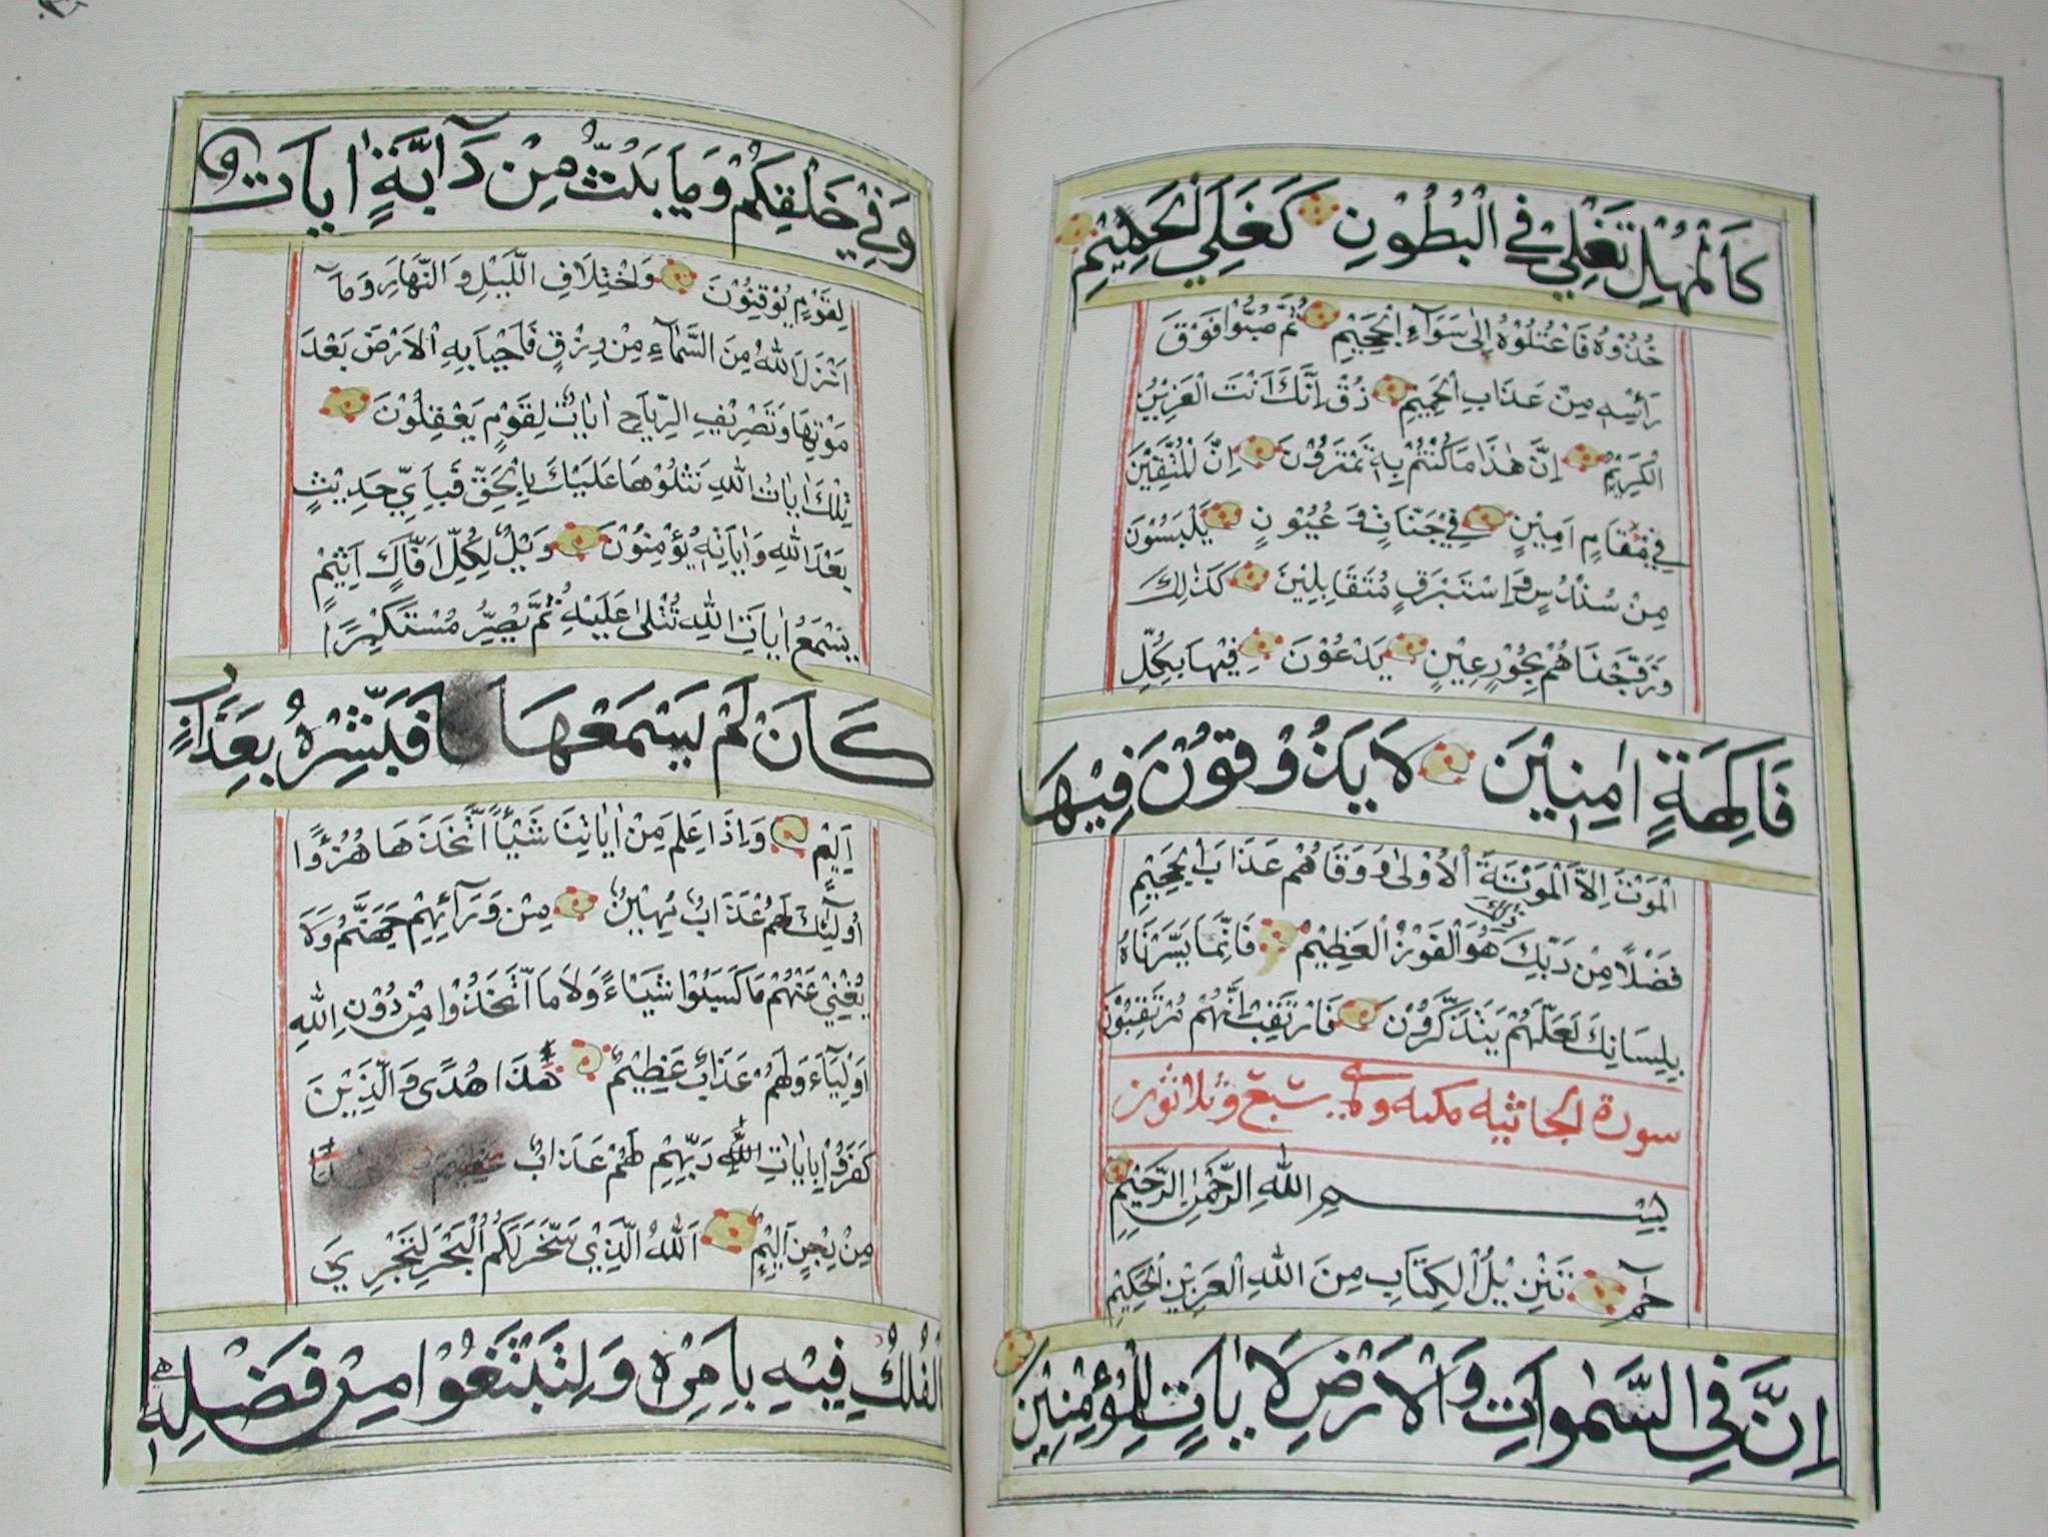 كَالْمُهْلِ تَغْلِيْ فِي الْبُطُوْنِ كَغَلْيِ الْحَمِيْمِ
خُذُوْهُ فَاعْتُلُوْهُ اِلٰى سَوَآءِ الْجَحِيْمِ ثُمَّ صُبُّوْا فَوْقَ
رَاْسِهِ مِنْ عَذَابِ الْحَمِيْمِ ذُقْ اِنَّكَ اَنْتَ الْعَزِيْزُ
الْكَرِيْمُ اِنَّ هٰذَا مَا كُنْتُمْ بِهِ تَمْتَرُوْنَ اِنَّ الْمُتَّقِيْنَ
فِيْ مَقَامٍ اَمِيْنٍ فِيْ جَنَّاتٍ وَ عُيُوْنٍ يَلْبَسُوْنَ
مِنْ سُنْدُسٍ وَاِسْتَبْرَقٍ مُتَقَابِلِيْنَ كَذٰلِكَ
وَزَوَّجْنَاهُمْ بِحُوْرٍ عِيْنٍ يَدْعُوْنَ فِيْهَا بِكُلِّ
فَاكِهَةٍ اٰمِنِيْنَ لَا يَذُوْقُوْنَ فِيْهَا
الْمَوْتَ اِلَّا الْمَوْتَةَ الْاُوْلٰى وَ وَقَاهُمْ عَذَابَ الْجَحِيْمِ
فَضْلًا مِنْ رَبِّكَ ذٰلِكَ هُوَ الْفَوْزُ الْعَظِيْمُ فَاِنَّمَا يَسَّرْنَاهُ
بِلِسَانِكَ لَعَلَّهُمْ يَتَذَكَّرُوْنَ فَارْتَقِبْ اِنَّهُمْ مُرْتَقِبُوْنَ
سورة الجاثيه مكيه وهي سبع وثلاثون
بِسْمِ اللهِ الرَّحْمٰنِ الرَّحِيْمِ
حٰمٓ تَنْزِيْلُ الْكِتَابِ مِنَ اللهِ الْعَزِيْزِ الْحَكِيْمِ
اِنَّ فِي السَّمٰوَاتِ وَالْاَرْضِ لَاٰيَاتٍ لِلْمُؤْمِنِيْنَ
وَفِيْ خَلْقِكُمْ وَمَا يَبُثُّ مِنْ دَآبَّةٍ اٰيَاتٌ
لِقَوْمٍ يُوْقِنُوْنَ وَاخْتِلَافِ اللَّيْلِ وَالنَّهَارِ وَمَآ
اَنْزَلَ اللهُ مِنَ السَّمَآءِ مِنْ رِزْقٍ فَاَحْيَا بِهِ الْاَرْضَ بَعْدَ
مَوْتِهَا وَتَصْرِيْفِ الرِّيَاحِ اٰيَاتٌ لِقَوْمٍ يَعْقِلُوْنَ
تِلْكَ اٰيَاتُ اللهِ نَتْلُوْهَا عَلَيْكَ بِالْحَقِّ فَبِاَيِّ حَدِيْثٍ
بَعْدَ اللهِ وَاٰيَاتِهِ يُؤْمِنُوْنَ وَيْلٌ لِكُلِّ اَفَّاكٍ اَثِيْمٍ
يَسْمَعُ اٰيَاتِ اللهِ تُتْلٰى عَلَيْهِ ثُمَّ يُصِرُّ مُسْتَكْبِرًا
كَاَنْ لَمْ يَسْمَعْهَا فَبَشِّرْهُ بِعَذَابٍ
اَلِيْمٍ وَاِذَا عَلِمَ مِنْ اٰيَاتِنَا شَيْئًا اتَّخَذَهَا هُزُوًا
اُولٰٓئِكَ لَهُمْ عَذَابٌ مُهِيْنٌ مِنْ وَرَآئِهِمْ جَهَنَّمُ وَلَا
يُغْنِيْ عَنْهُمْ مَا كَسَبُوْا شَيْئًا وَلَا مَا اتَّخَذُوْا مِنْ دُوْنِ اللهِ
اَوْلِيَآءَ وَلَهُمْ عَذَابٌ عَظِيْمٌ هٰذَا هُدًى وَالَّذِيْنَ
كَفَرُوْا بِاٰيَاتِ اللهِ رَبِّهِمْ لَهُمْ عَذَابٌ
مِنْ رِجْزٍ اَلِيْمٌ اَللهُ الَّذِيْ سَخَّرَ لَكُمُ الْبَحْرَ لِتَجْرِيَ
الْفُلْكُ فِيْهِ بِاَمْرِهِ وَلِتَبْتَغُوْا مِنْ فَضْلِهِ